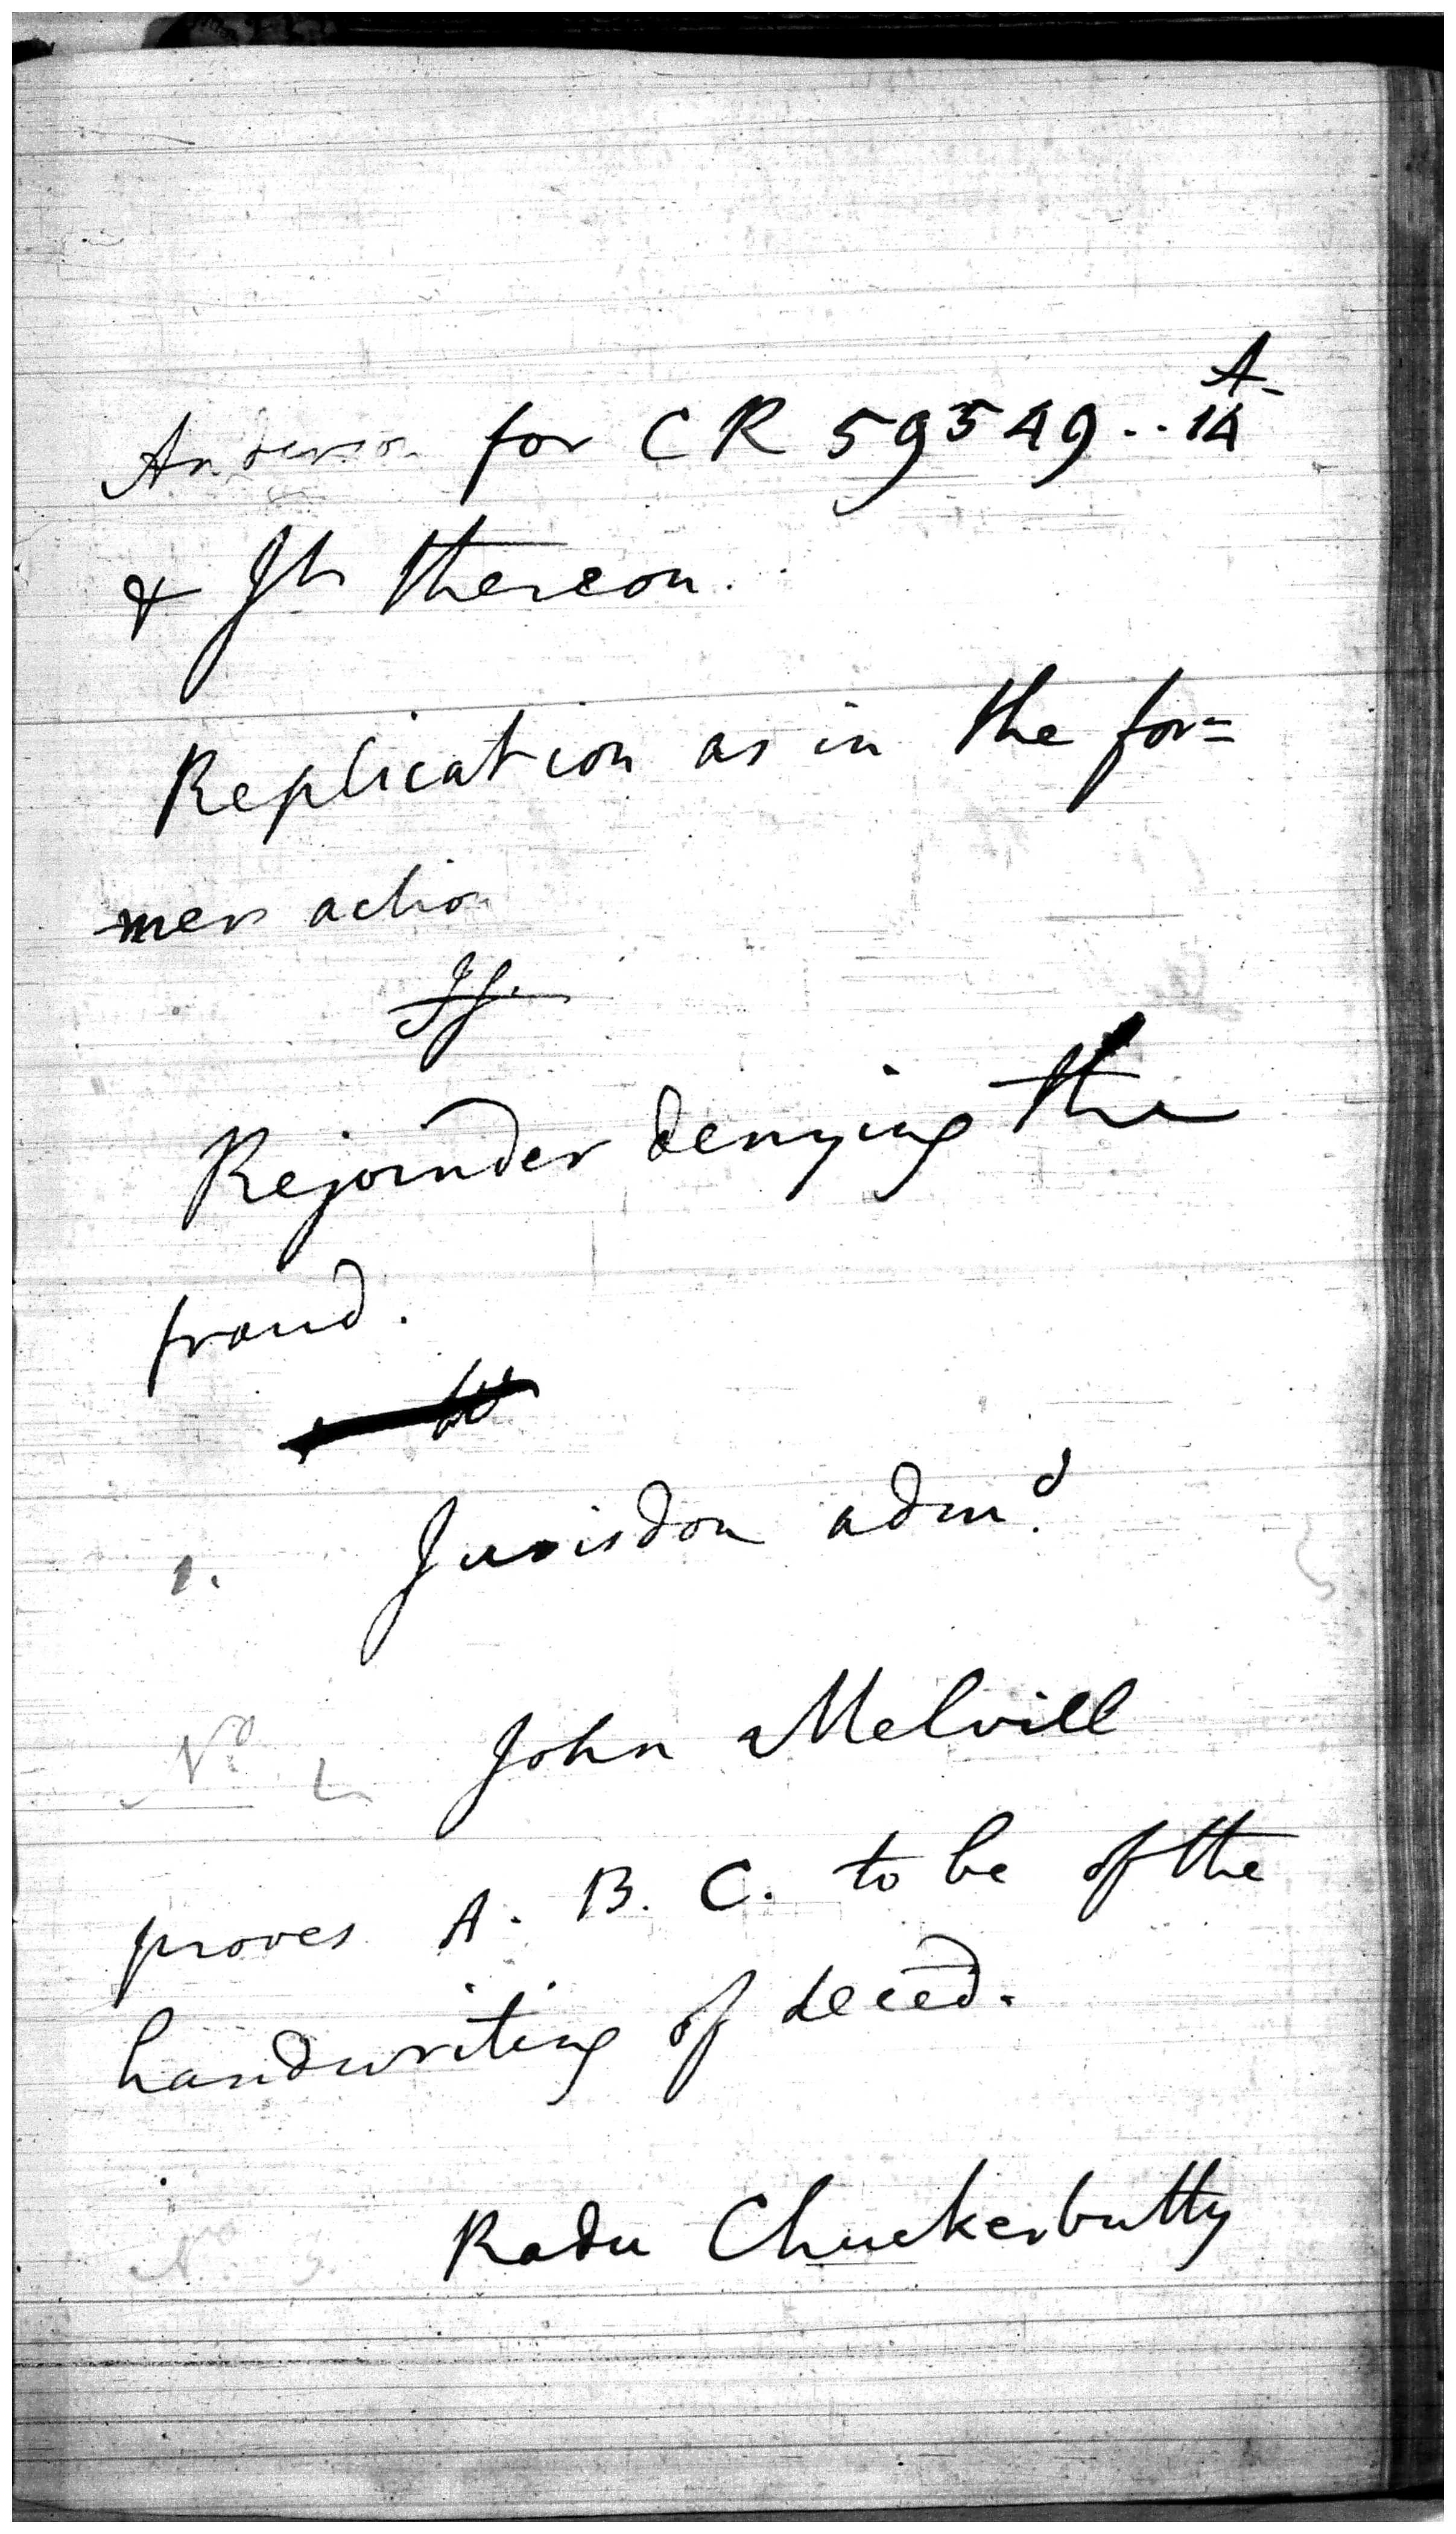 A
Anderson for CR 59549..14
& Jt thereon.
Replication as in the for=
mer action
Rejoinder denying the
fraud.
1. Jurisdon admd.
No. 2 John Melvill
proves A. B. C. to be of the
handwriting of deced.
No. 3. Radu Chuckerbutty